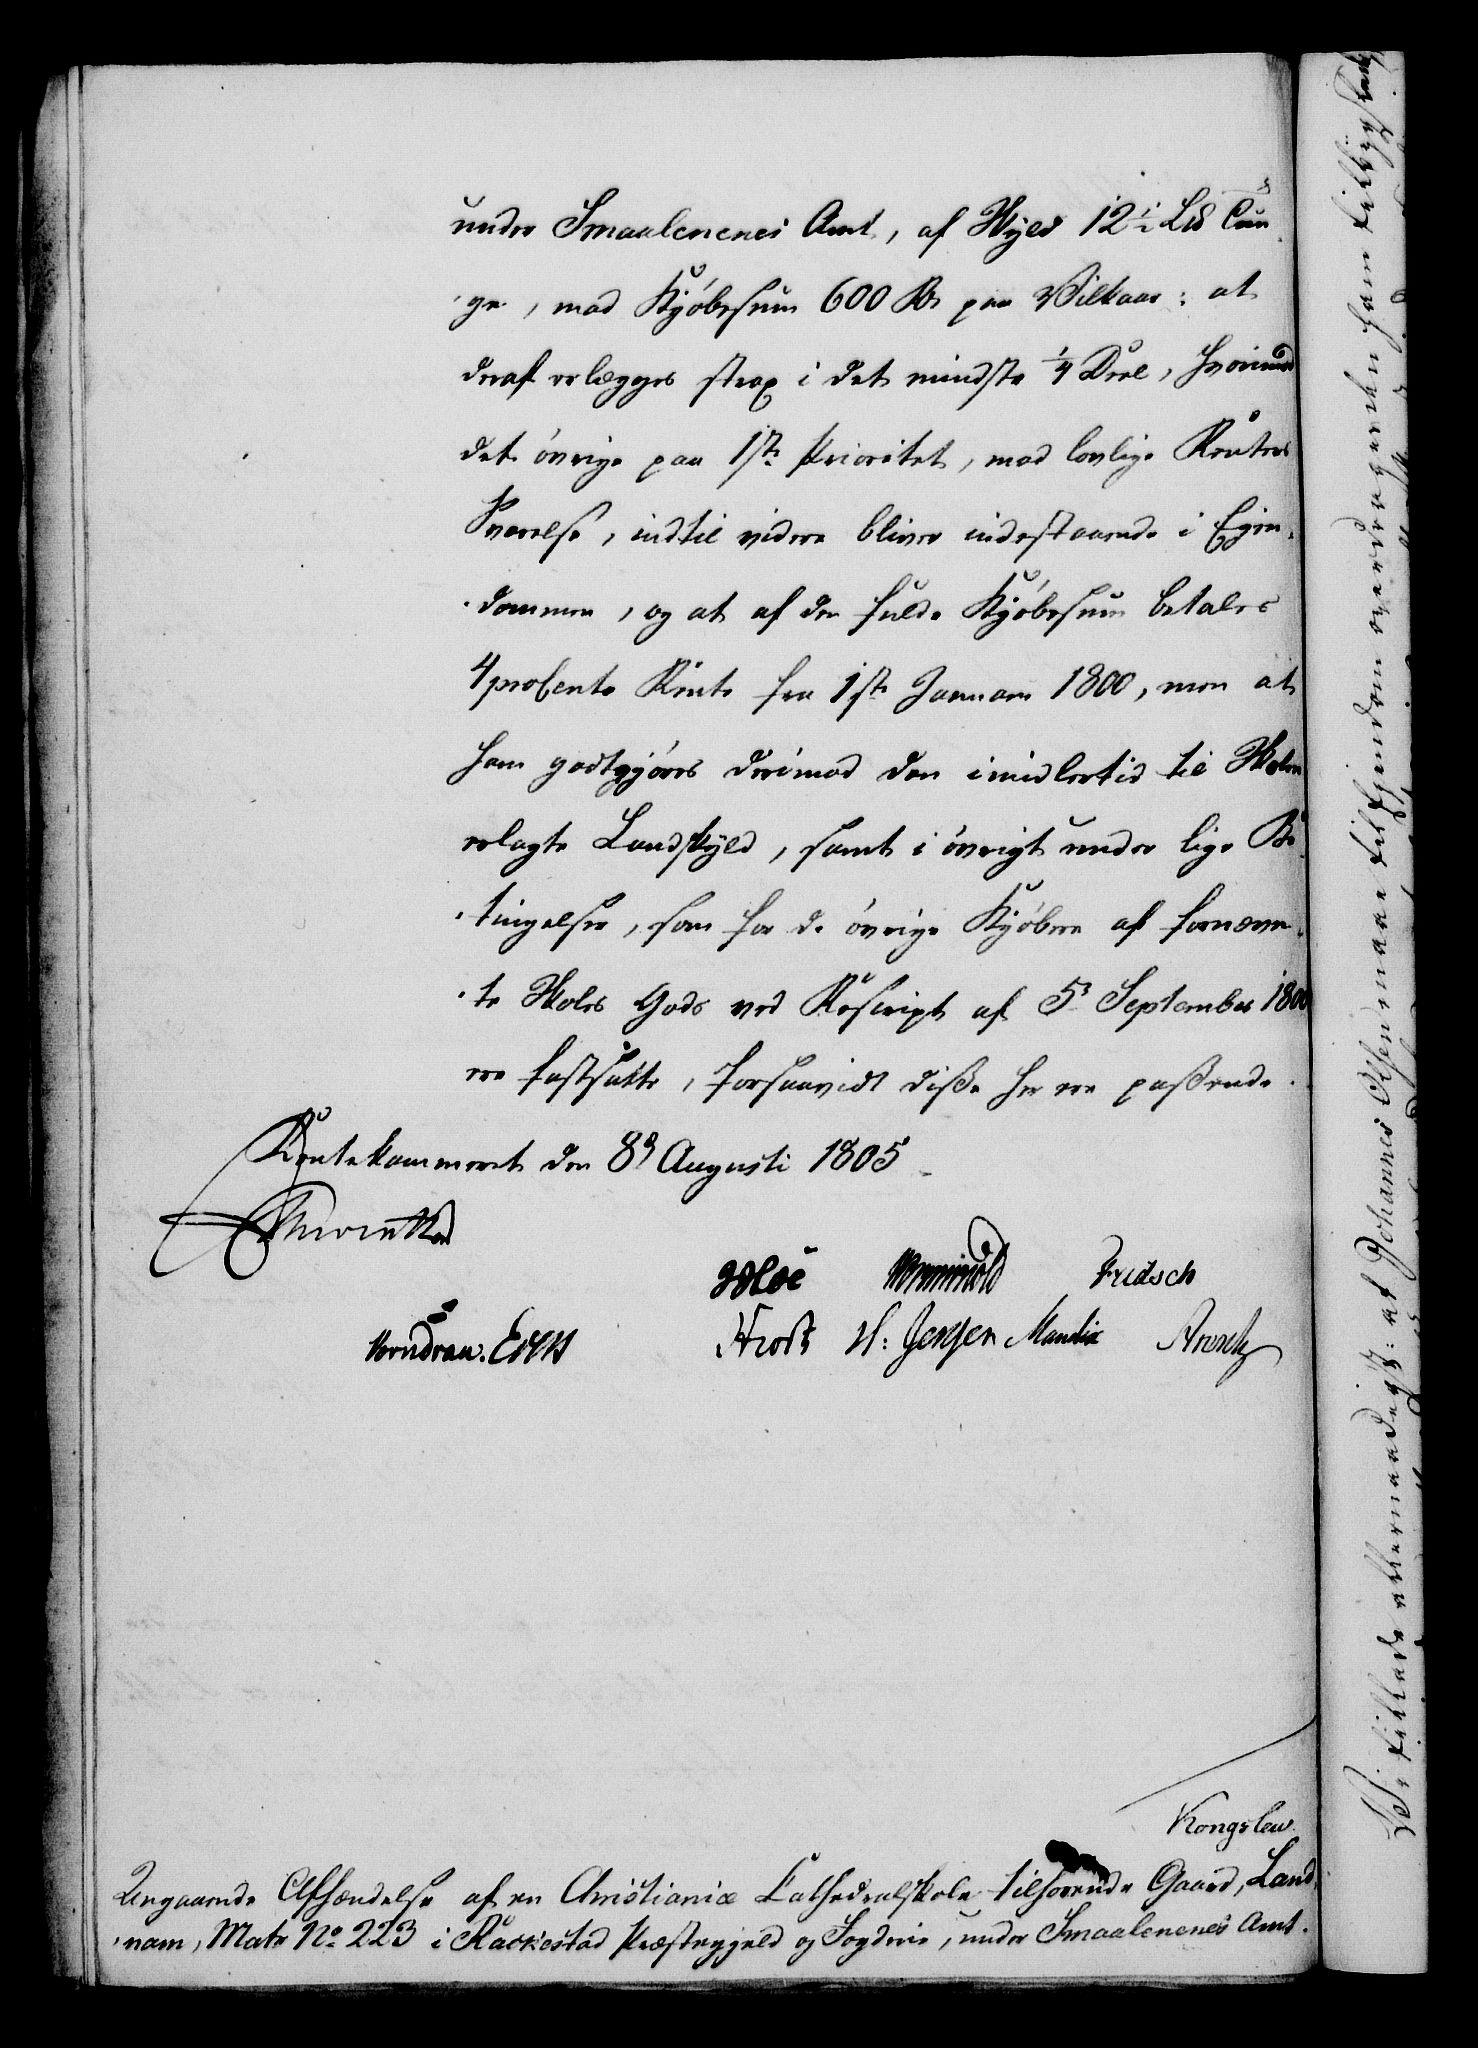 under Smaalenenes Amt, af Skyld 12½ L℔ Tun
ge, mod Kjöbesum 600 Rd paa Vilkaar: at
deraf erlægges strax i det mindste ¼ Deel, hvorimod
det övrige paa 1ste Prioritet, mod lovlige Renters
Svarelse, indtil videre bliver indestaaende i Eien-
dommen, og at af den fulde Kjöbesum betales
4 proCento Rente fra 1ste Januarii 1800, men at
ham godtgjöres derimod den imidlertid til Skolen
erlagte Landskyld, samt i övrigt under lige Be-
tingelser, som for de övrige Kjöbere af fornævn-
te Skoles Gods ved Rescript af 5te September 1800
ere fastsatte, forsaavidt disse her ere passende.
Rentekammeret den 8de Augusti 1805
Wormskiold Fridsch
Vorndran. Frost H: Jensen Manthix Arentz
Kongslew.
Angaaende Afhændelse af en Christianiæ Cathedralskole tilhörende Gaard, Land-
nam, Matr No 223 i Rackestad Præstegjeld og Fogderie, under Smaalenenes Amt.
Vi tillade allernaadigst: at Johannes Olsen maae til Eiendom overdrages den ham tilbyxlede